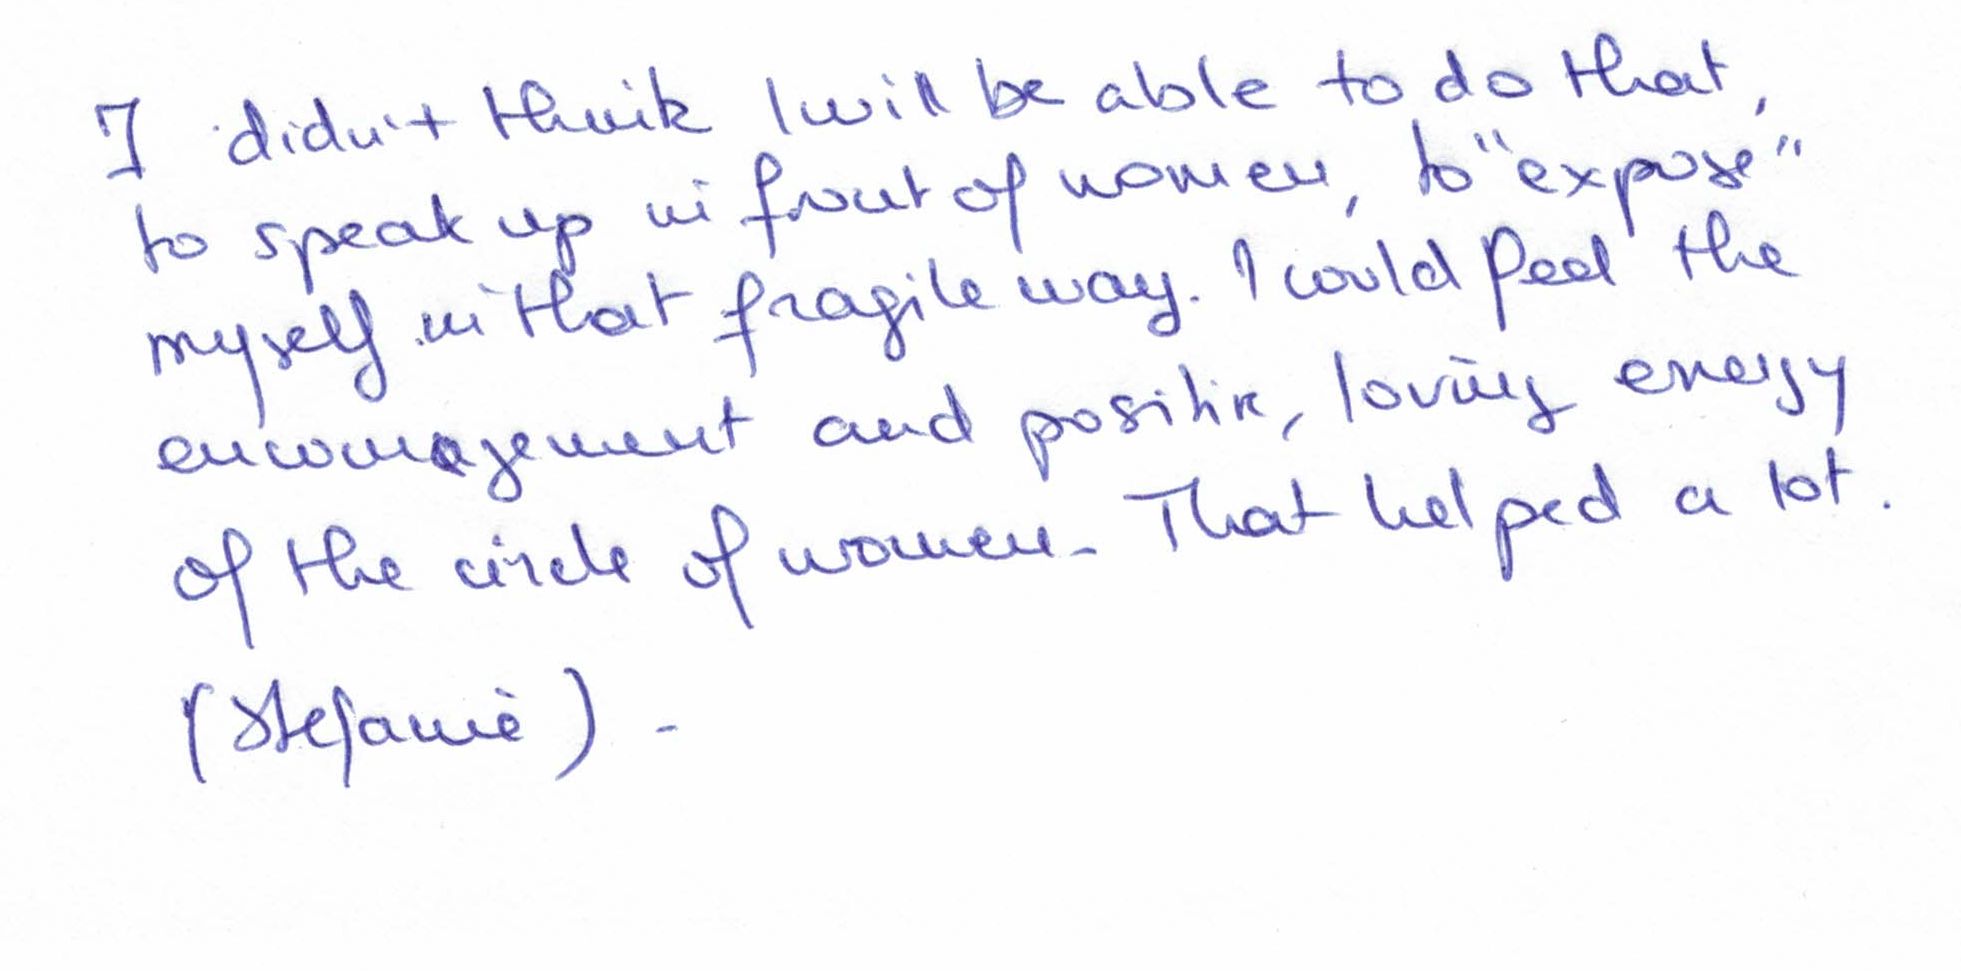 I didn't think I will be able to do that,
to speak up in front of women, to "expose"
myself in that fragile way. I could feel the
encouragement and positive, loving energy
of the circle of women. That helped a lot.
(Stefanie).